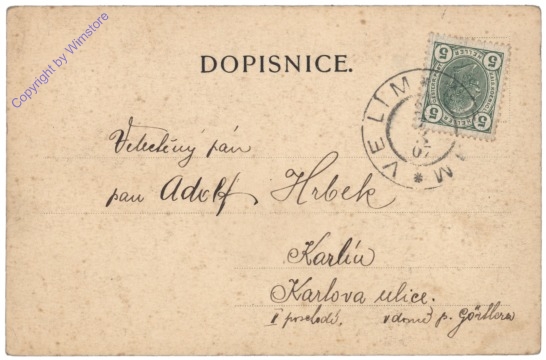 Copyright by Wimstore
DOPISNICE.
VELIM * VELIM *
07
5 5
HELLER HELLER
5 5
Velectěný pán
pan Adolf Hrbek
Karlín
Karlova ulice.
I poschodí. v domě p. Görtlera